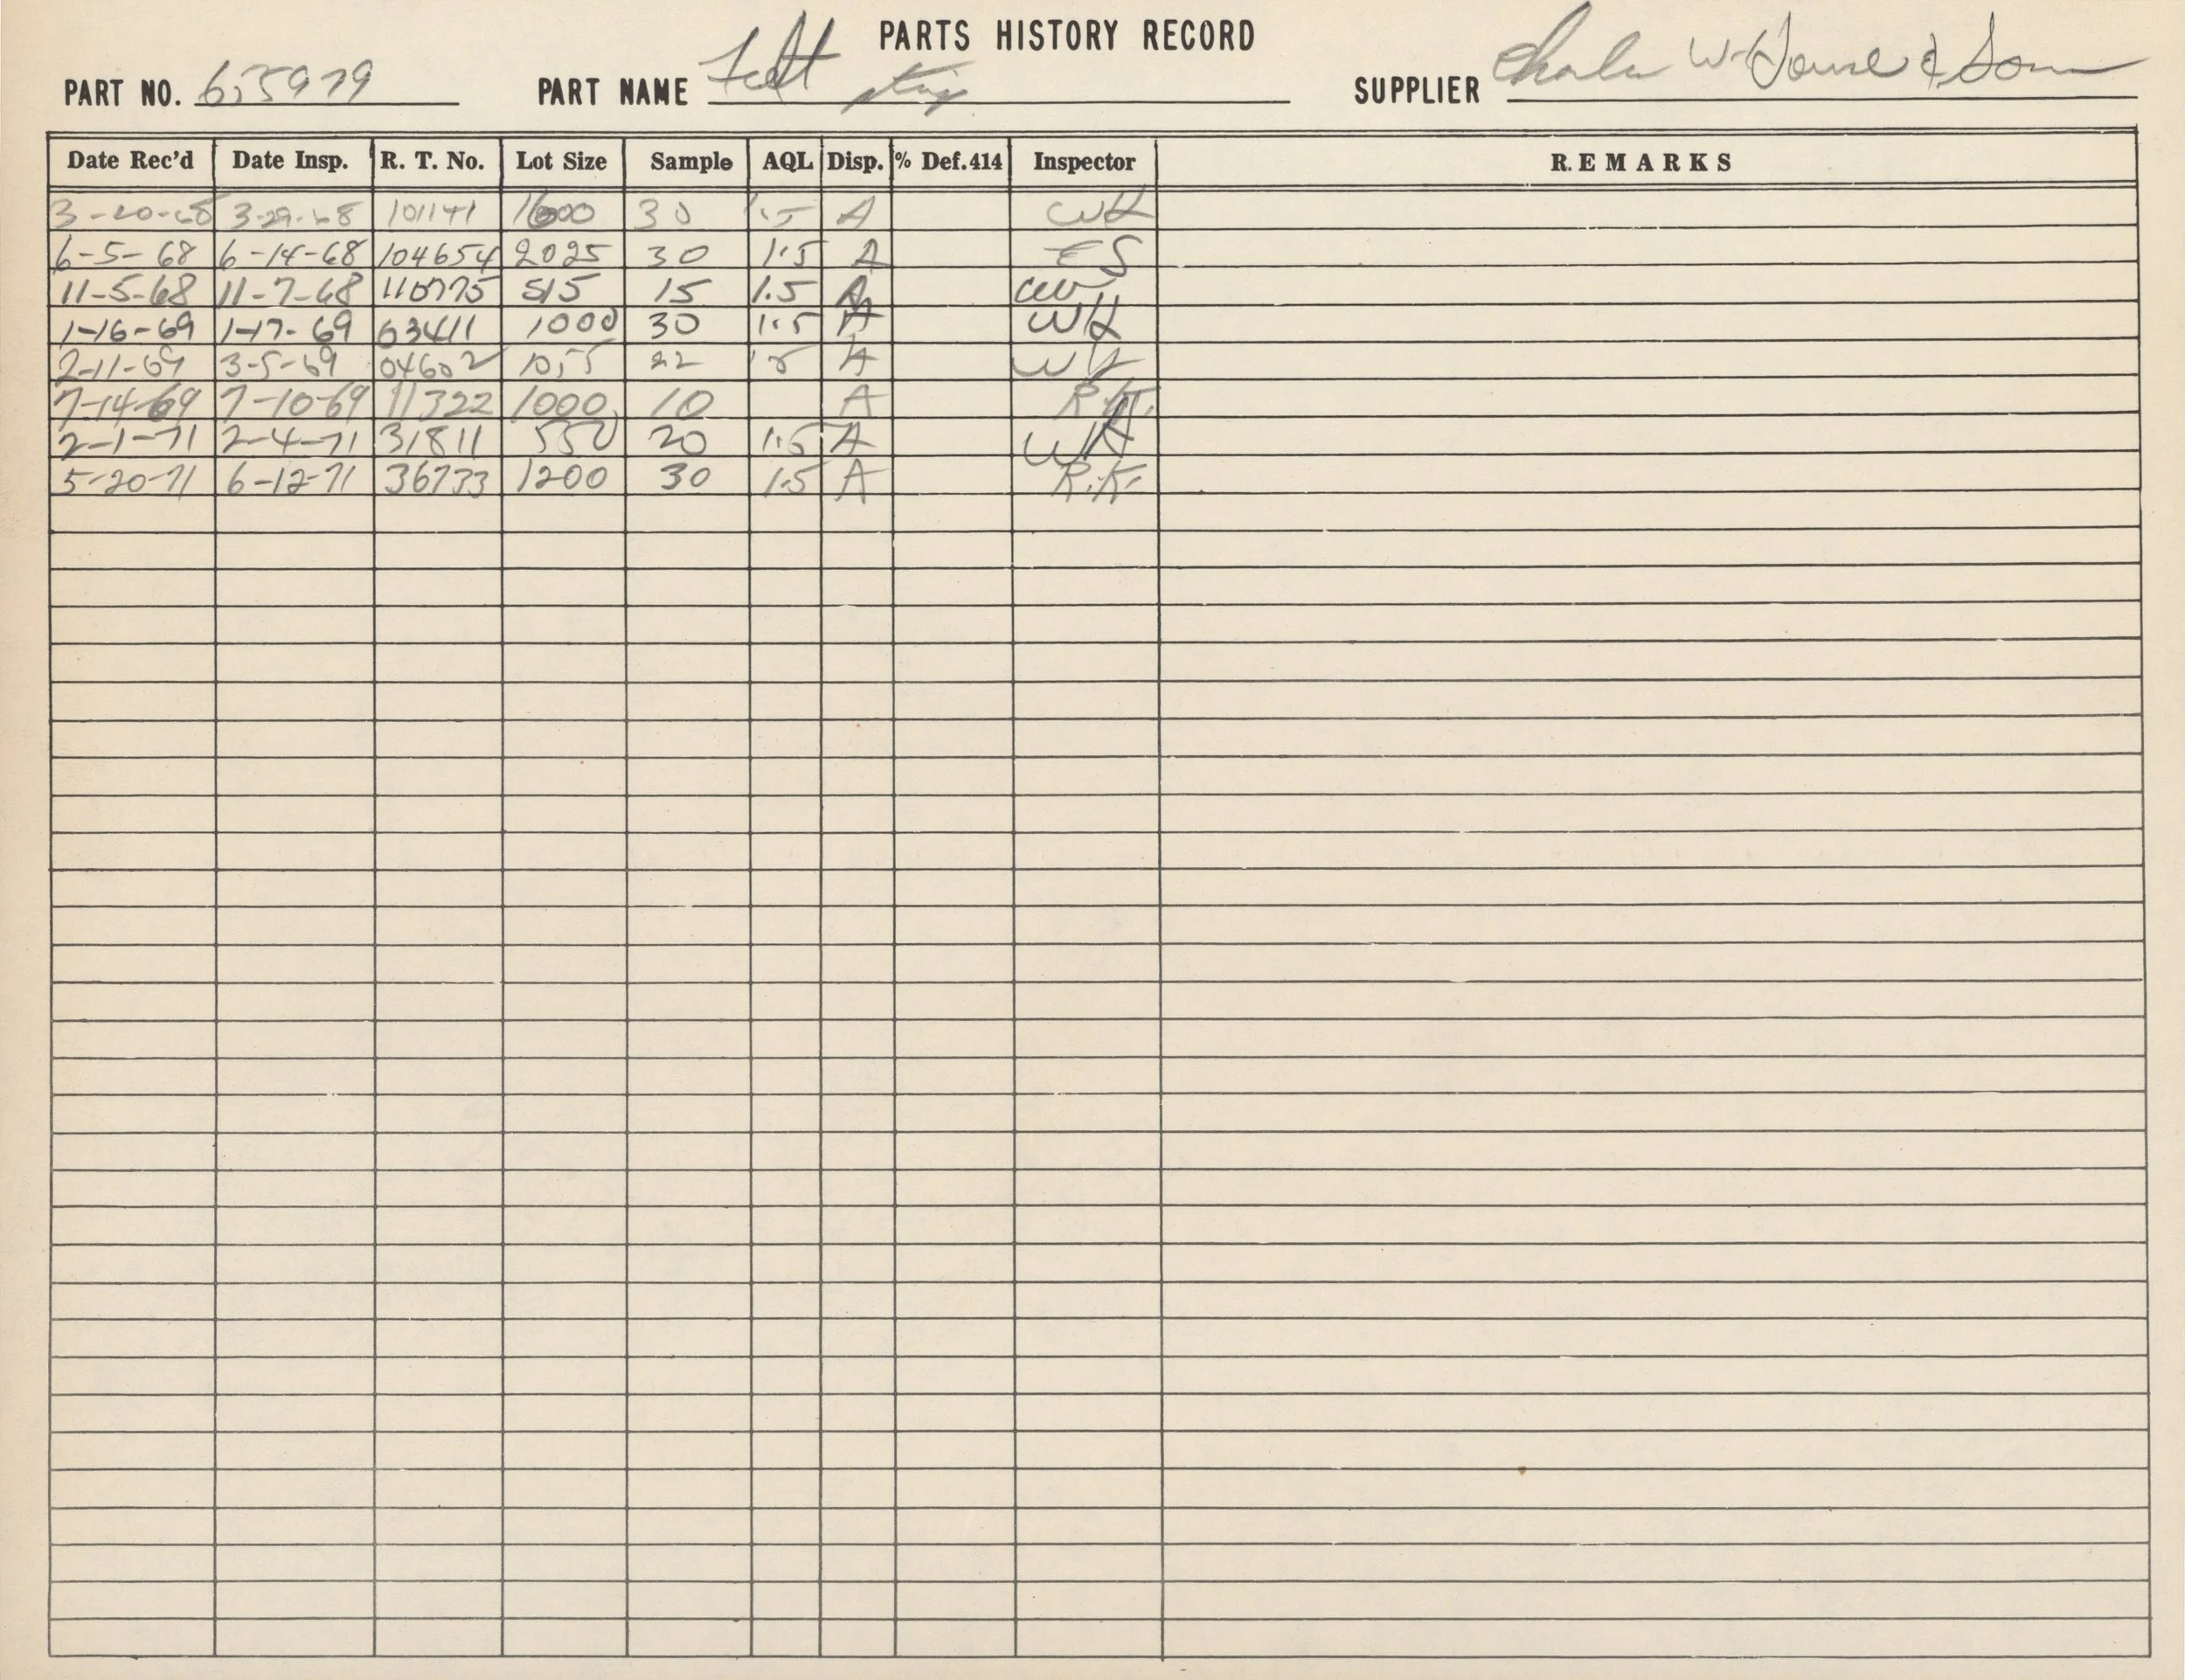 PARTS HISTORY RECORD
PART NO. 635979 PART NAME Felt strip SUPPLIER Charles W. House & Sons
Date Rec'd Date Insp. R. T. No. Lot Size Sample AQL Disp. % Def.414 Inspector REMARKS
3-20-68 3-29-68 101141 1600 30 1.5 A WH
6-5-68 6-14-68 104654 2025 30 1.5 A ES
11-5-68 11-7-68 110775 515 15 1.5 A
1-16-69 1-17-69 03411 1000 30 1.5 A WH
2-11-69 3-5-69 04602 1055 22 A WH
7-14-69 7-10-69 11322 1000 10 A R.K.
2-1-71 2-4-71 31811 550 20 1.5 A WH
5-20-71 6-12-71 36733 1200 30 1.5 A R.K.